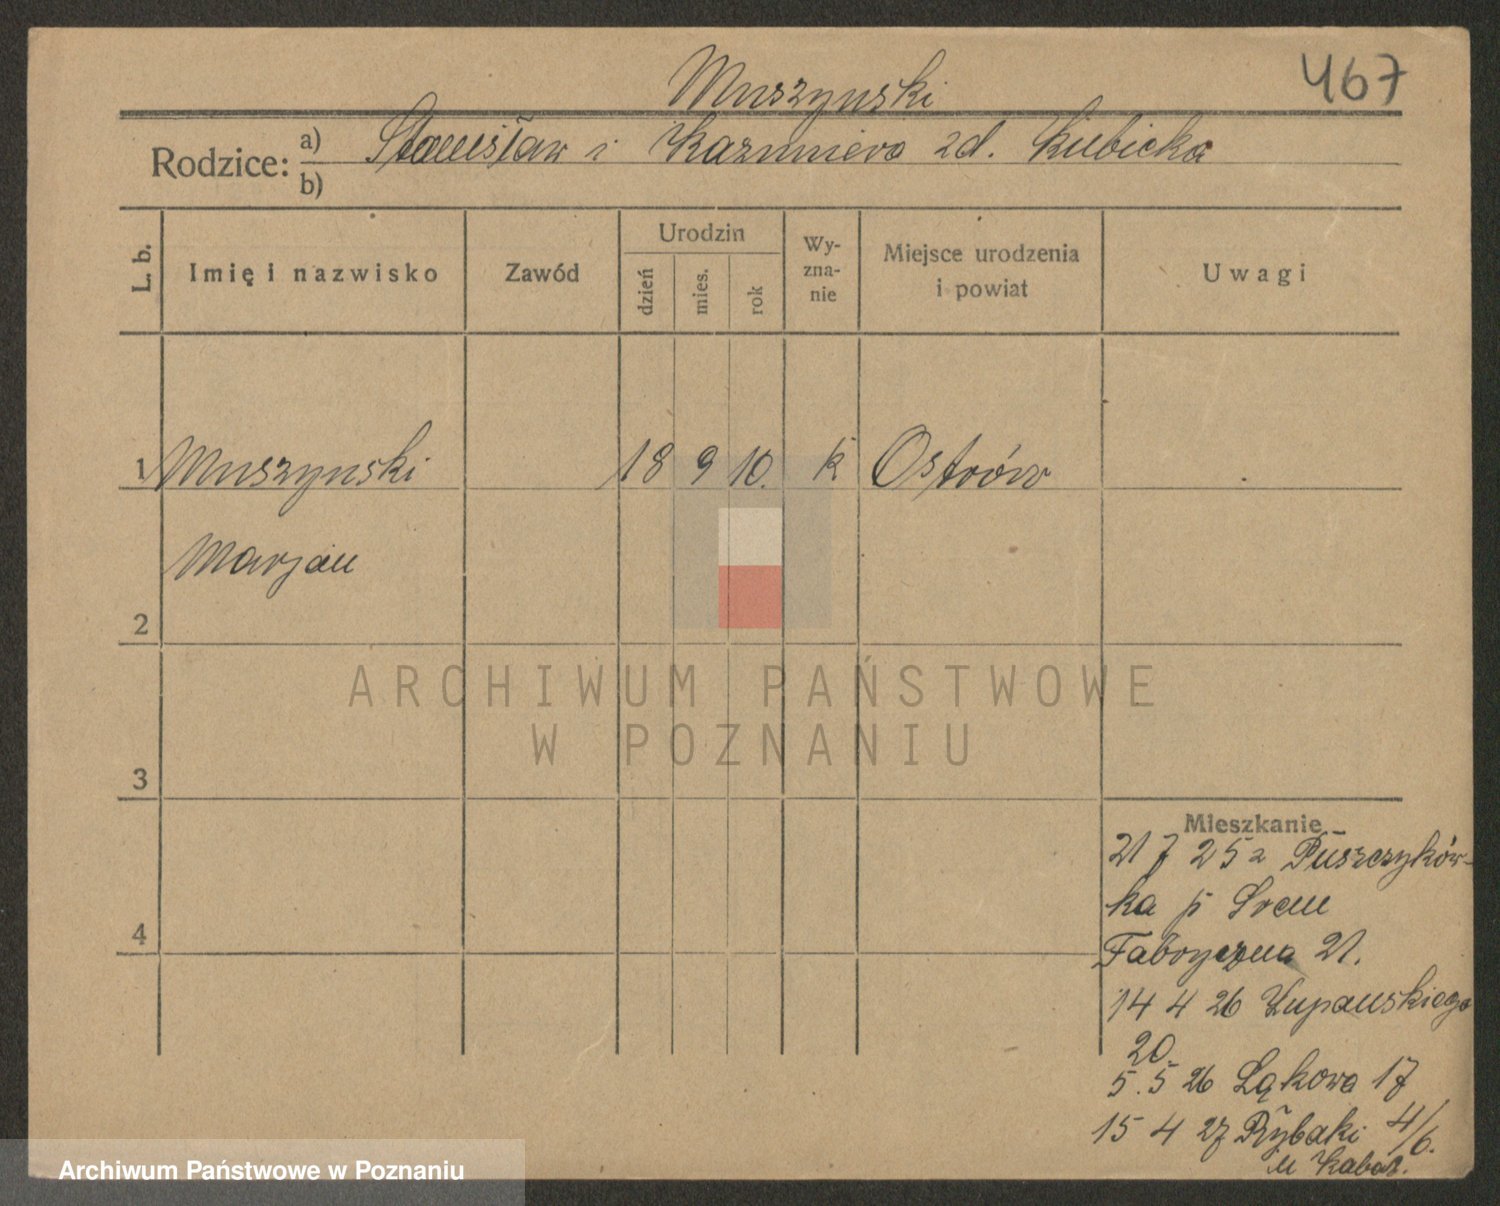 467
Muszynski
Rodzice: a) Stanisław i Kazimiera zd. Kubicka
b)
L. b.
Imię i nazwisko
Zawód
Urodzin
dzień
mies.
rok
Wy-
zna-
nie
Miejsce urodzenia
i powiat
Uwagi
1 Muszynski 18 9 10. k Ostrów
Marjan
2
3
4
Mieszkanie
21 7 25 z Puszczyków-
ka p Srem
Fabryczna 21.
14 4 26 Łupanskiego
20.
5. 5 26 Łąkowa 17
15 4 27 Rybaki 4/6.
u
ARCHIWUM PAŃSTWOWE
W POZNANIU
Archiwum Państwowe w Poznaniu